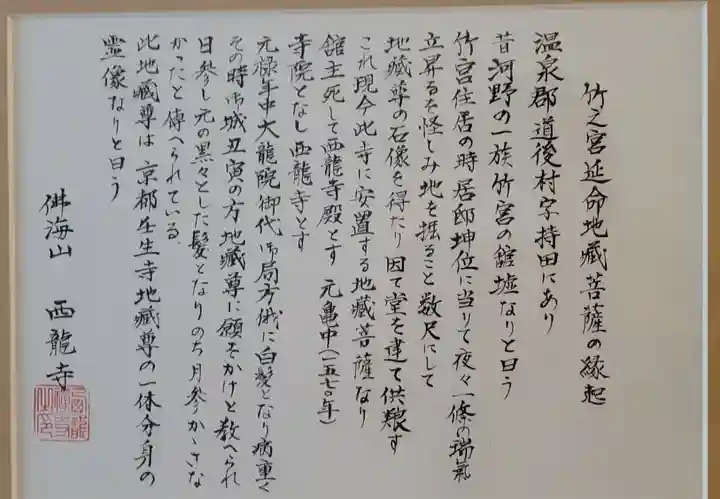 竹之宮延命地藏菩薩の縁起
温泉郡道後村字持田にあり
昔河野の一族竹宮の舘墟なりと曰う
竹宮住居の時居邸坤位に当りて夜々一條の瑞氣
立昇るを怪しみ地を掘ること数尺にして
地蔵尊の石像を得たり因て堂を建て供粮す
これ現今此寺に安置する地藏菩薩なり
舘主死して西龍寺殿とす 元亀中(一五七〇年)
寺院となし西龍寺とす
元禄年中大龍院御代御局方俄に白髪となり病重く
その時御城丑寅の方地藏尊に願をかけと教へられ
日参し元の黒々とした髪となりのち月参かゝさな
かったと傳へられている
此地藏尊は京都壬生寺地藏尊の一体分身の
霊像なりと曰う
佛海山 西龍寺